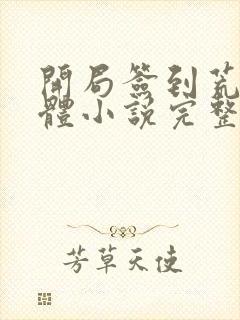 開局簽到荒
體小說完整
芳草天使